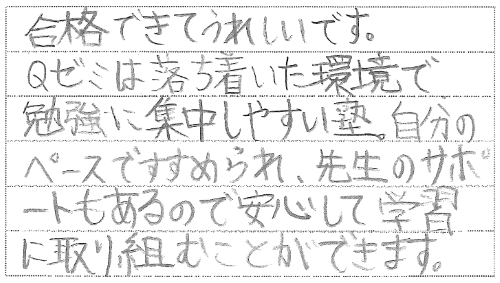 合格できてうれしいです。
Qゼミは落ち着いた環境で
勉強に集中しやすい塾。自分の
ペースですすめられ、先生のサポ
ートもあるので安心して学習
に取り組むことができます。